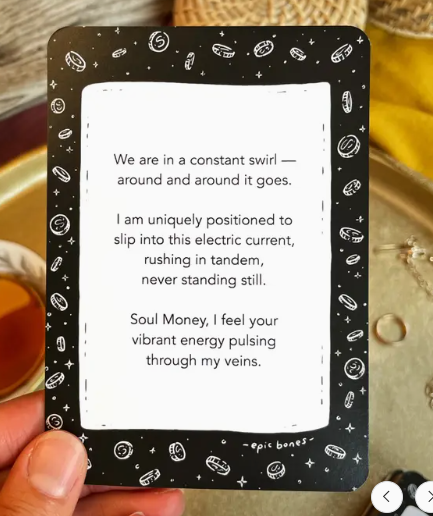 We are in a constant swirl —
around and around it goes.
I am uniquely positioned to
slip into this electric current,
rushing in tandem,
never standing still.
Soul Money, I feel your
vibrant energy pulsing
through my veins.
-epic bones-